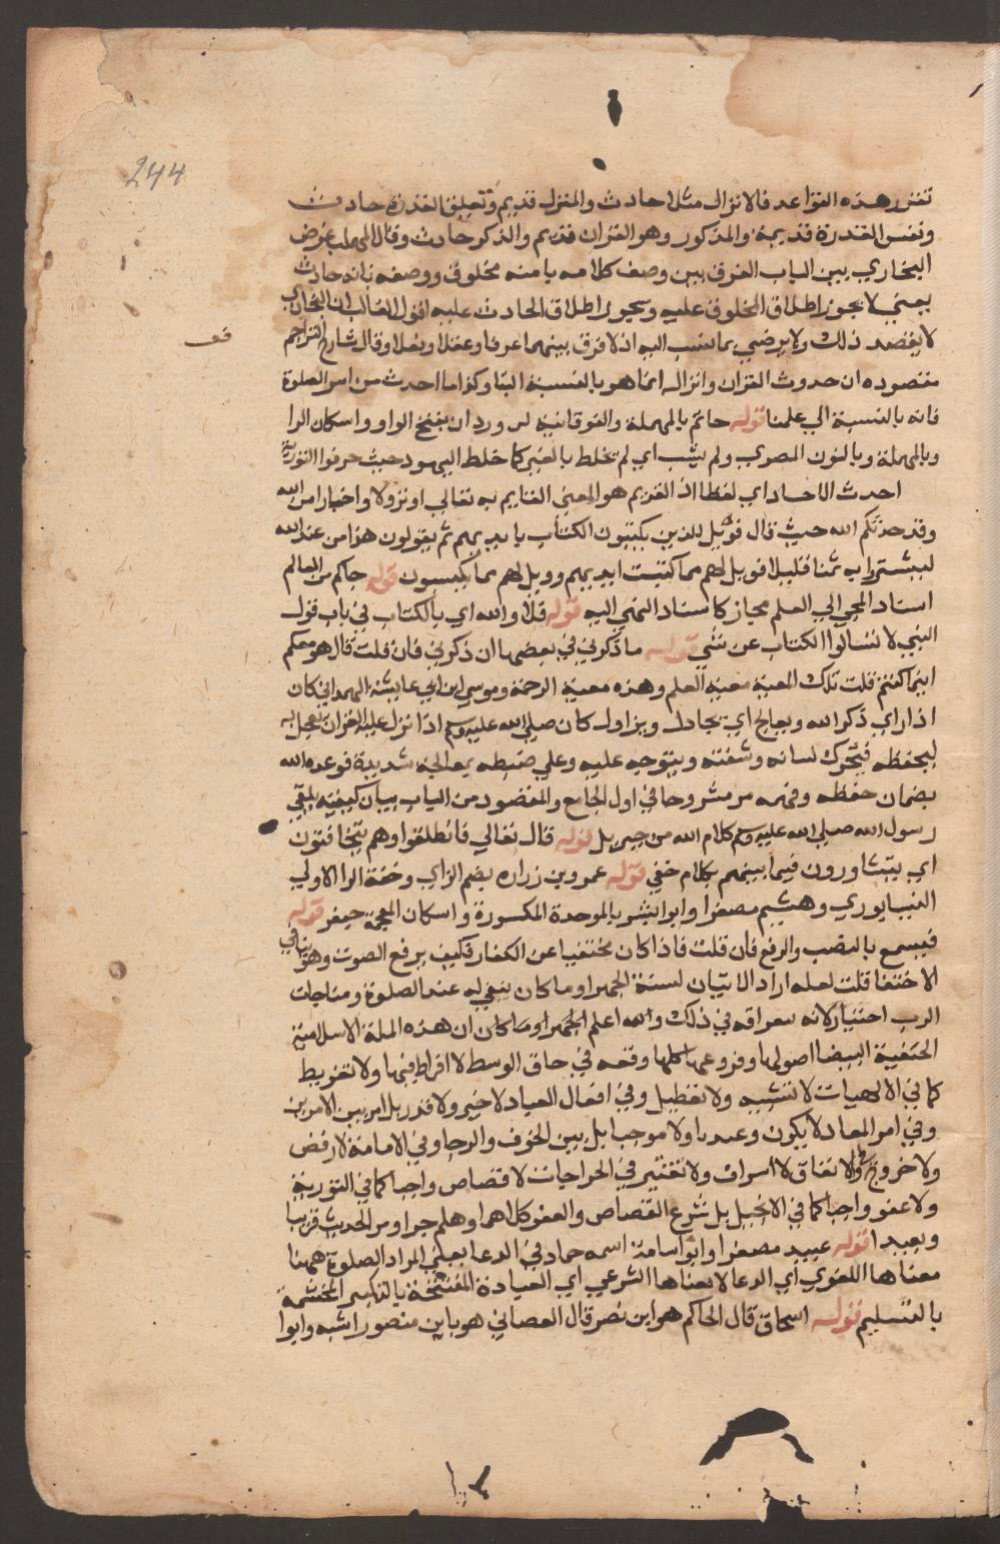 244
تتقرر هذه القواعد فالانزال مثلا حادث والمنزل قديم وتعلق القدرة حادث
ونفس القدرة قديمة والمذكور وهو القران قديم والذكر حادث وقال المهلب غرض
البخاري بين الباب الفرق بين وصف كلامه بانه مخلوق ووصفه بانه حادث
يعني لا يجوز اطلاق المخلوق عليه ويجوز اطلاق الحادث عليه اقول الغالب ان البخاري
لا يقصد ذلك ولا يرضي بما نسب اليه اذ لا فرق بينهما عرفا وعقلا ونقلا وقال شارح التراجم
قف
مقصوده ان حدوث القران وانزاله انما هو بالنسبة الينا وكذا ما احدث من امر الصلوة
فانه بالنسبة الي علمنا قوله حاتم بالمهملة والفوقانية بن وردان بفتح الواو واسكان الرا
وبالمهملة وبالنون المصري ولم يشب اي لم يخلط بالغير كما خلط اليهود حيث حرفوا التورية
احدث الاخبار اي لفظا اذ القديم هو المعني القايم به تعالي او نزولا واخبارا من الله
وقد حدثكم الله حيث قال فويل للذين يكتبون الكتاب بايديهم ثم يقولون هذا من عند الله
ليشتروا به ثمنا قليلا فويل لهم مما كتبت ايديهم وويل لهم مما يكسبون قوله جاكم من العالم
اسناد المجي الي العلم مجاز كاسناد النهي اليه قوله فلا والله اي بالكتاب في باب قول
النبي لا تسالوا الكتاب عن شي قوله ما ذكرني في بعضها ان ذكرني فان قلت قال هو معكم
اينما كنتم قلت تلك المعية معية العلم وهذه معية الرحمة وموسي ابن ابي عايشة الهمداني كان
اذا راي ذكر الله ويعالج اي يجادل ويزاول كان صلي الله عليه وسلم اذا نزل عليه القران يعجل به
ليحفظه فيتحرك لسانه وشفته ويتوجه عليه وعلي ضبطه يعالجه شديدة فوعده الله
بضمان حفظه وفهمه مر مشروحا في اول الجامع والمقصود من الباب بيان كيفية تلقي
رسول الله صلي الله عليه وسلم كلام الله من جبريل قوله قال تعالي فانطلقوا وهم يتخافتون
اي يتشاورون فيما بينهم بكلام خفي قوله عمرو بن زراره بضم الزاي وخفة الرا الاولي
النيسابوري وهشيم مصغرا وابو بشر بالموحدة المكسورة واسكان المعجمة جعفر قوله
فيسمع بالنصب والرفع فان قلت فاذا كان مختفيا عن الكفار فكيف يرفع الصوت وهو ينافي
الاختفا قلت لعله اراد الاتيان لسنة الجهر او ما كان يبقي له عند الصلوة ومناجات
الرب اختيار لاستغراقه في ذلك والله اعلم الجهر او ما كان ان هذه الملة الاسلامية
الحنفية البيضا اصولها وفروعها كلها وقعه في حاق الوسط لا افراط فيها ولا تفريط
كما في الالهيات لا تشبيه ولا تعطيل وفي افعال العباد لا جبر ولا قدر بل امر بين الامرين
وفي امر المعاد لا يكون وعيديا ولا مرجيا بل بين الخوف والرجا وفي الامامة لا رفض
ولا خروج وفي الانفاق لا اسراف ولا تقتير في الجراحات لا قصاص واجبا كما في التورية
ولا عفو واجبا كما في الانجيل بل شرع القصاص والعفو كلاهما وهلم جرا ومر الحديث قريبا
وبعيدا قوله عبيد مصغرا وابو اسامة اسمه حماد في الدعا يعني المراد الصلوة ههنا
معناها اللغوي اي الدعا لا معناها الشرعي اي العبادة المفتتحة بالتكبير المختتمة
بالتسليم قوله اسحاق قال الحاكم هو ابن نصر قال الغساني هو بابن منصور اشبه وابو